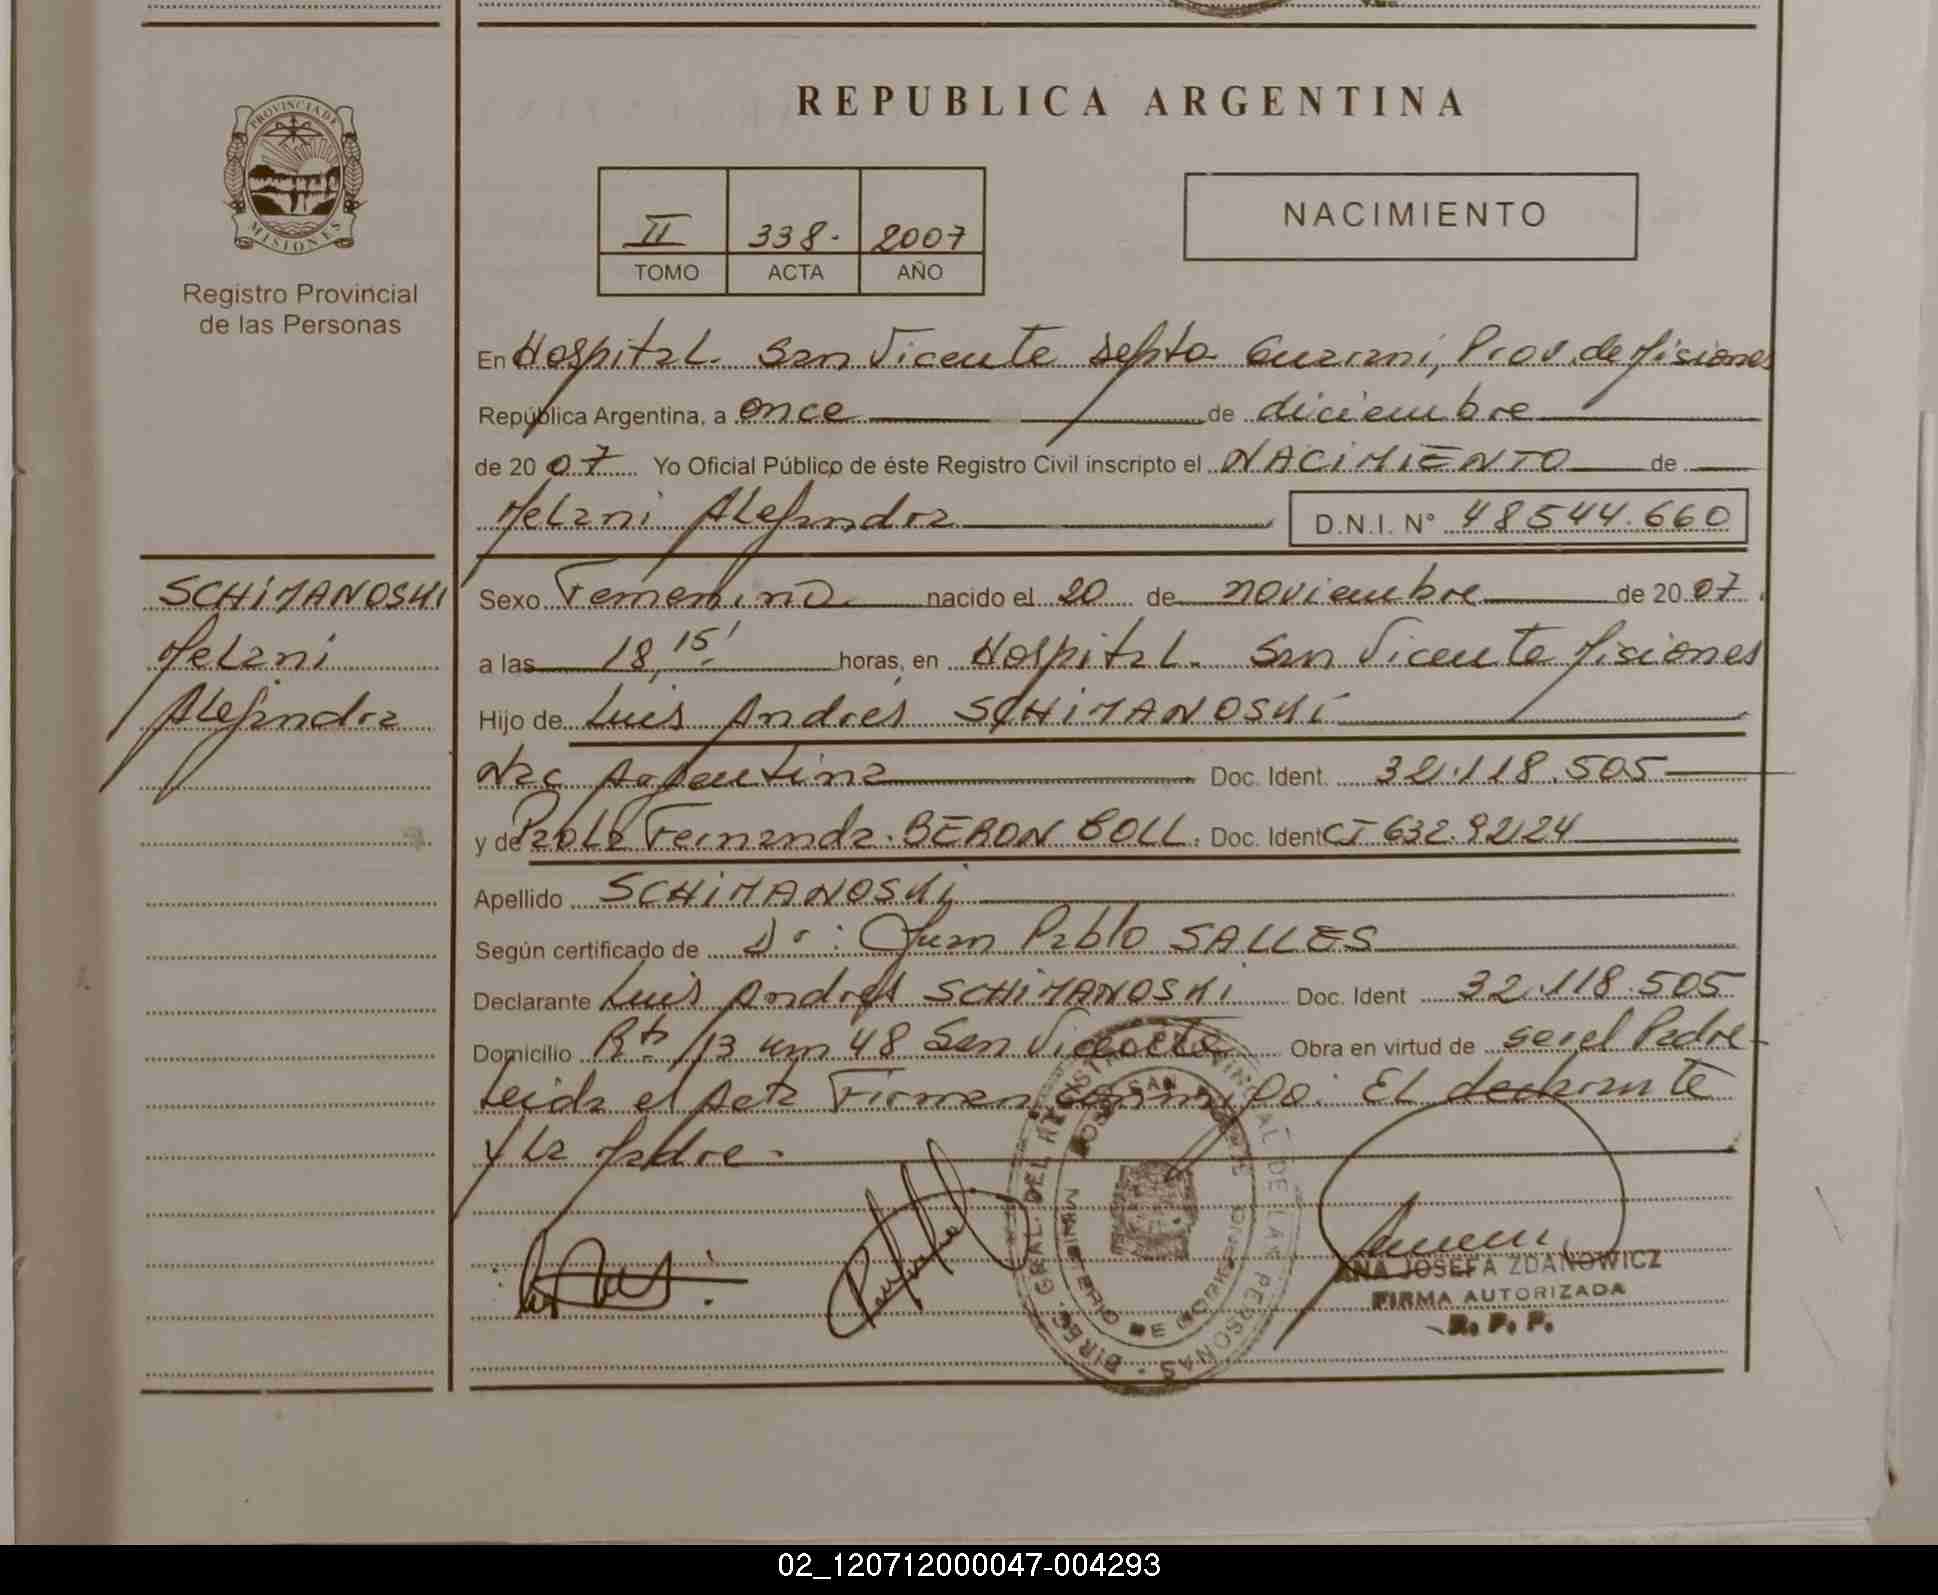 REPUBLICA ARGENTINA
PROVINCIA DE
MISIONES
Registro Provincial
de las Personas
II 338. 2007
TOMO ACTA AÑO
NACIMIENTO
En Hospital. San Vicente Depto. Guaraní, Prov. de Misiones
República Argentina, a once de diciembre
de 2007 Yo Oficial Público de éste Registro Civil inscripto el NACIMIENTO de
Melani Alejandra D.N.I. N° 48544.660
SCHIMANOSKI
Melani
Alejandra
Sexo Femenino nacido el 20 de noviembre de 2007
a las 18,15' horas, en Hospital. San Vicente Misiones
Hijo de Luis Andrés SCHIMANOSKI
Nac Argentina Doc. Ident. 32.118.505
y de Paola Fernanda. BERON BOLL. Doc. Ident CI 632.92124
Apellido SCHIMANOSKI
Según certificado de Dr: Juan Pablo SALLES
Declarante Luis Andrés SCHIMANOSKI Doc. Ident 32.118.505
Domicilio Rta 13 km 48 San Vicente Obra en virtud de ser el Padre
Leida el Acta Firman conmigo: El declarante
y la Madre.
DIREC. GRAL. DEL REGISTRO PROVINCIAL DE LAS PERSONAS
HOSP. SAN VICENTE
MINISTERIO DE GOBIERNO
ANA JOSEFA ZDANOWICZ
FIRMA AUTORIZADA
R. P. P.
02_120712000047-004293